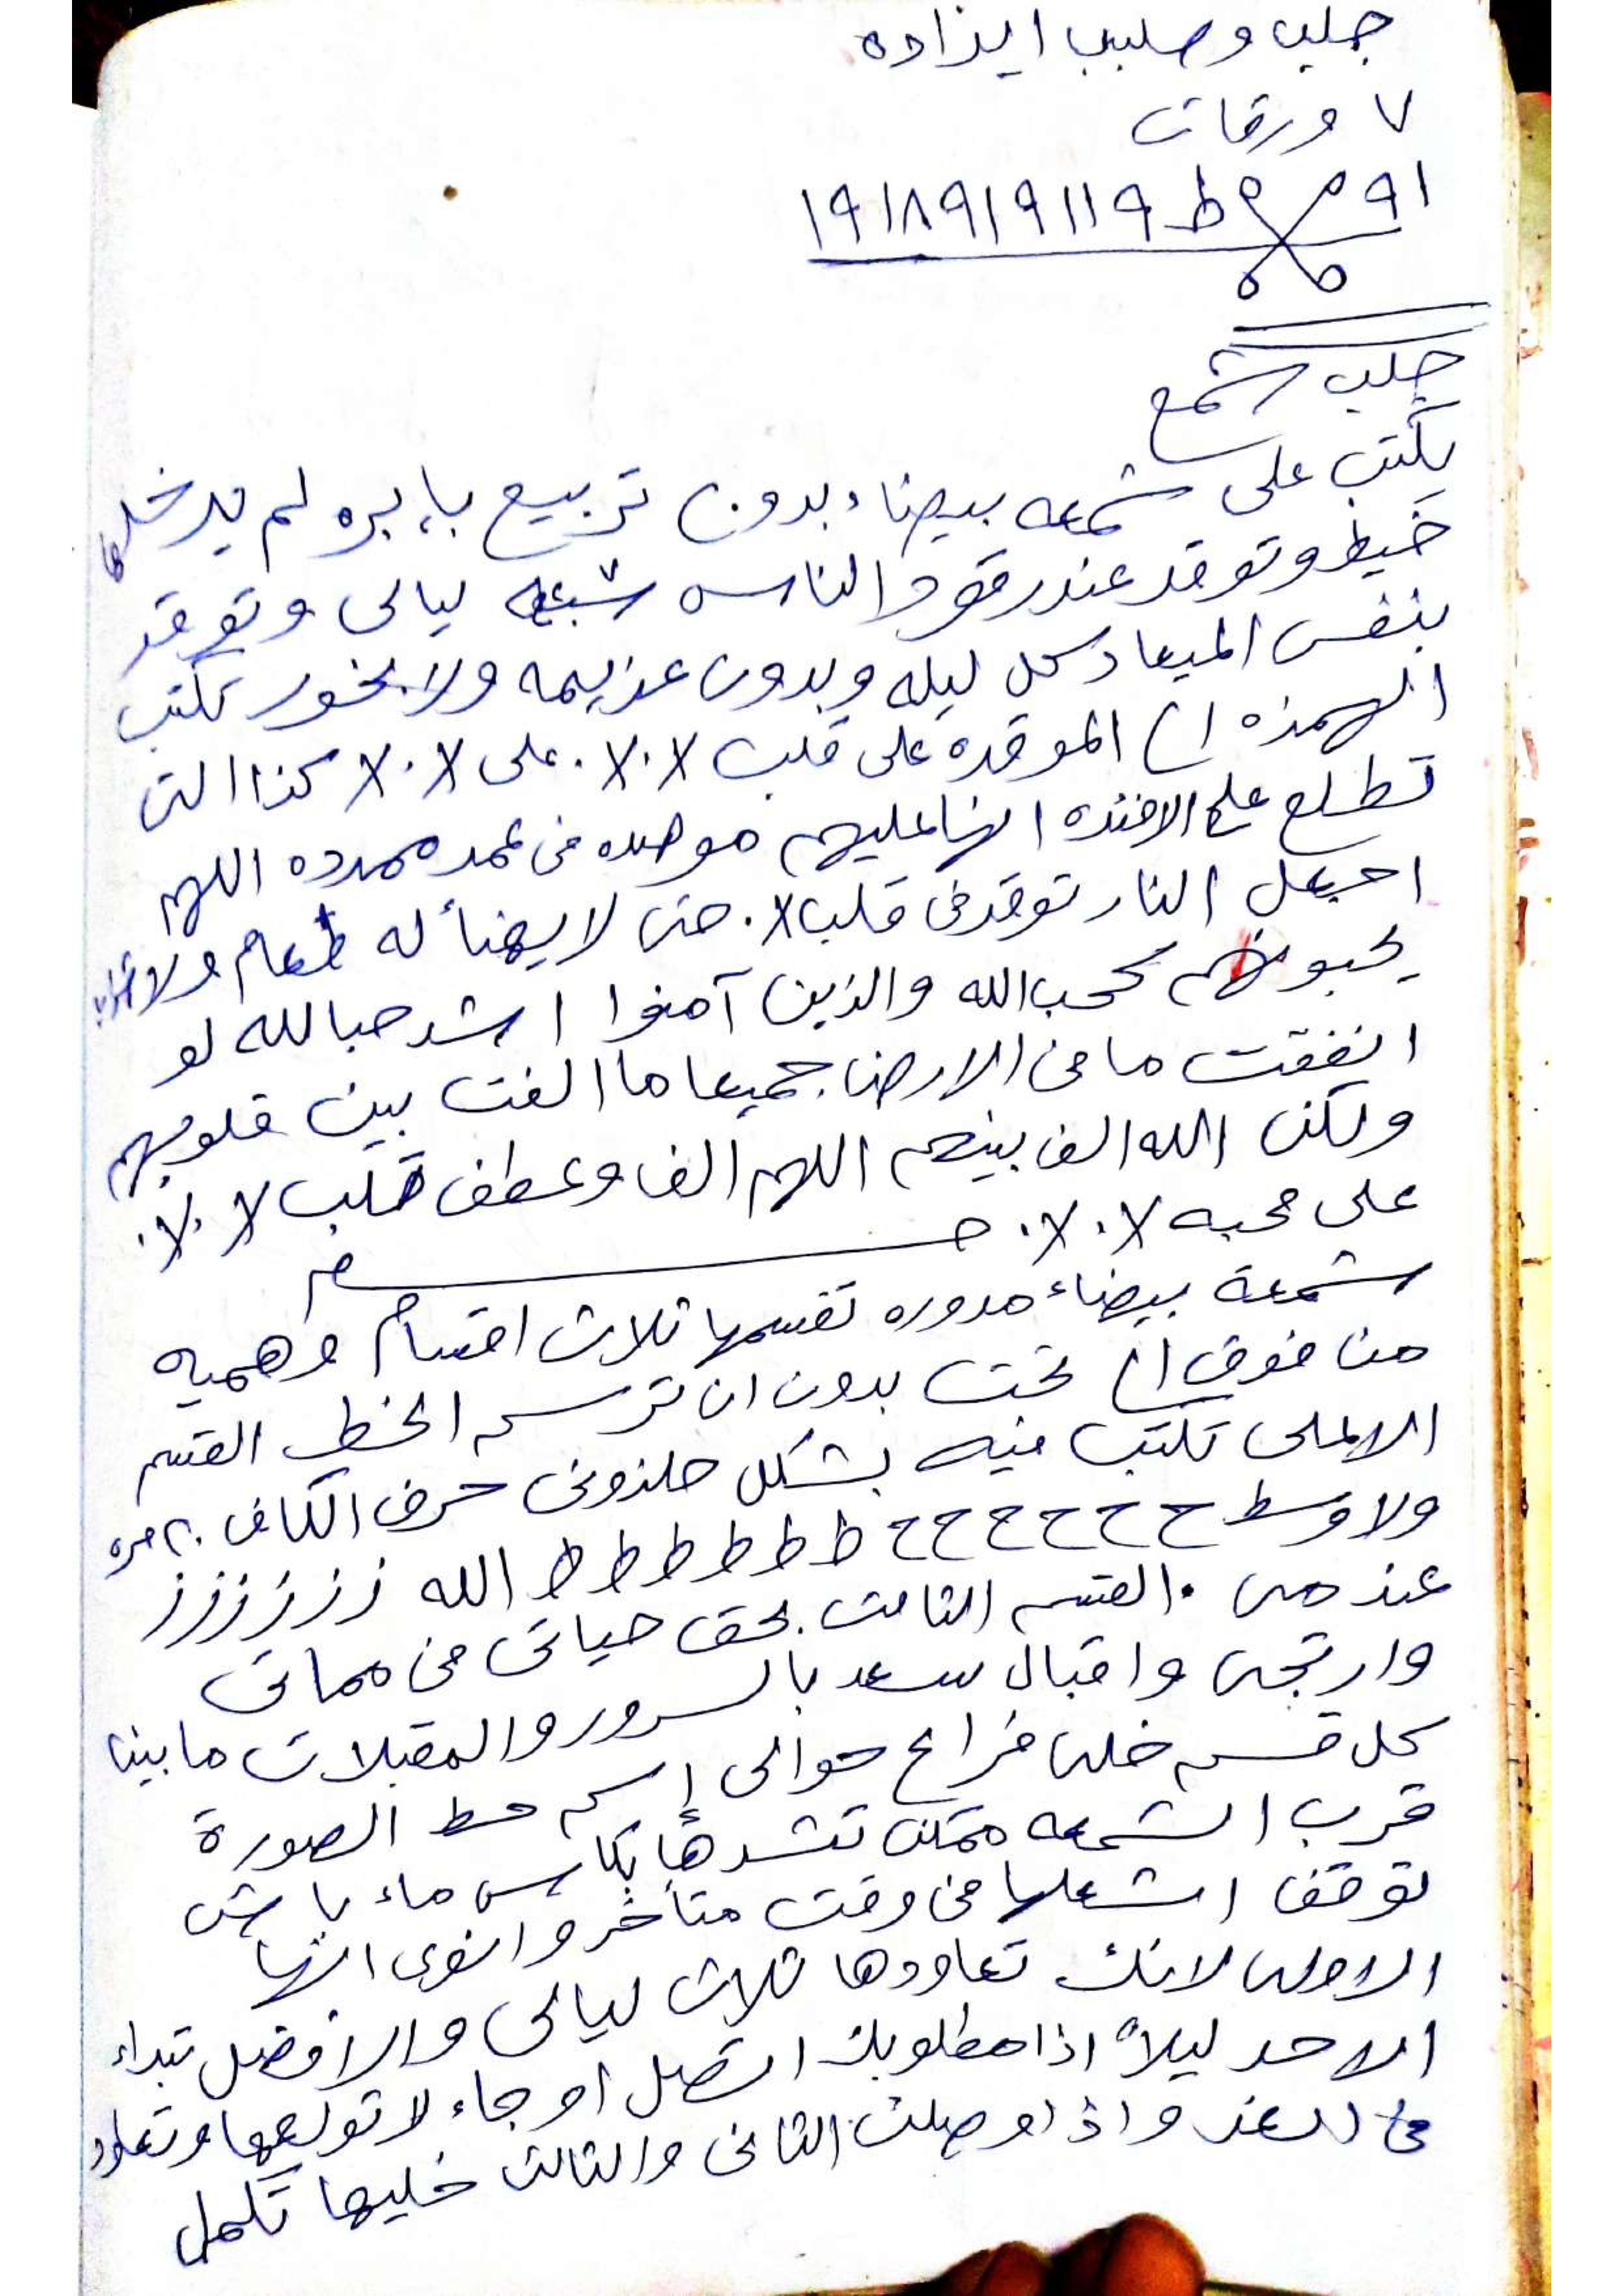 جلب وصلبب ايزاده
٧ ورقات
١٩ ط ١٩١٨٩١٩١١٩
جلب شمع
يكتب على شمعه بيضاء بدون تربيع بإبره لم يدخلها
خيط وتوقد عند رقود الناس سبعه ٧ ليالى وتوقد
بنفس الميعاد كل ليله وبدون عزيمه ولا بخور تكتب
الهمزه الى الموقده على قلب ١٠٧٠ على ١٠٧٠ كذا التى
تطلع على الافئده انها عليهم موصده فى عمد ممدده اللهم
اجعل النار توقد فى قلب ١٠ حتى لا يهنأ له طعام ولا شراب
يحبونهم كحب الله والذين آمنوا اشد حبا لله لو
انفقت ما فى الارض جميعا ما الفت بين قلوبهم
ولكن الله الف بينهم اللهم الف وعطف قلب
على محبه
شمعة بيضاء مدوره تقسمها ثلاث اقسام وهميه
من فوق الى تحت بدون ان ترسم الخط القسم
الاعلى تكتب فيه بشكل حلزونى حرف الكاف ٢٠ مره
ولاوسط ح ح ح ح ح ح ط ط ط ط ط ط الله ز ز ز ز ز ز
القسم الثالث بحق حياتى فى مماتى
وارتجى واقبال سعد بالسرور والمقبلات ما بين
كل قسم خلى فراغ حوالى إسم حط الصورة
قرب الشمعه ممكن تشدها بكاس ماء باش
توقف اشعلها فى وقت متأخر وانوى انها
الاولى لانك تعاودها ثلاث ليالى والافضل تبداء
الاحد ليلاً اذا مطلوبك اتصل او جاء لا تولعها وتعاود
فى الغد واذا وصلت الثانى والثالث خليها تكمل